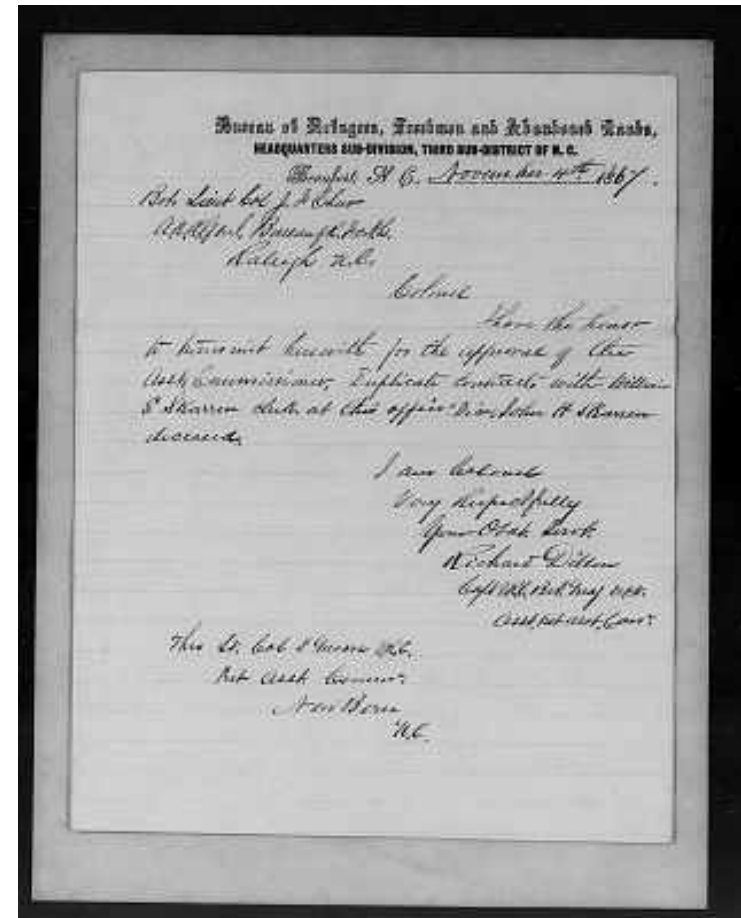 Bureau of Refugees, Freedmen and Abandoned Lands,
HEADQUARTERS SUB-DIVISION, THIRD SUB-DISTRICT OF N. C.
Beaufort N. C. November 4th 1867.
Bvt Lieut Col J. F. Chur
Raleigh N.C.
Colonel
I have the honor
to transmit herewith for the approval of the
Asst Commissioner, Duplicate contracts with William
Skarren Clerk at this office Vice, John H Skarren
deceased,
I am Colonel
Very Respectfully
Your Obdt. Servt.
Richard Dillon
Thro Lt. Col
New Bern
N.C.